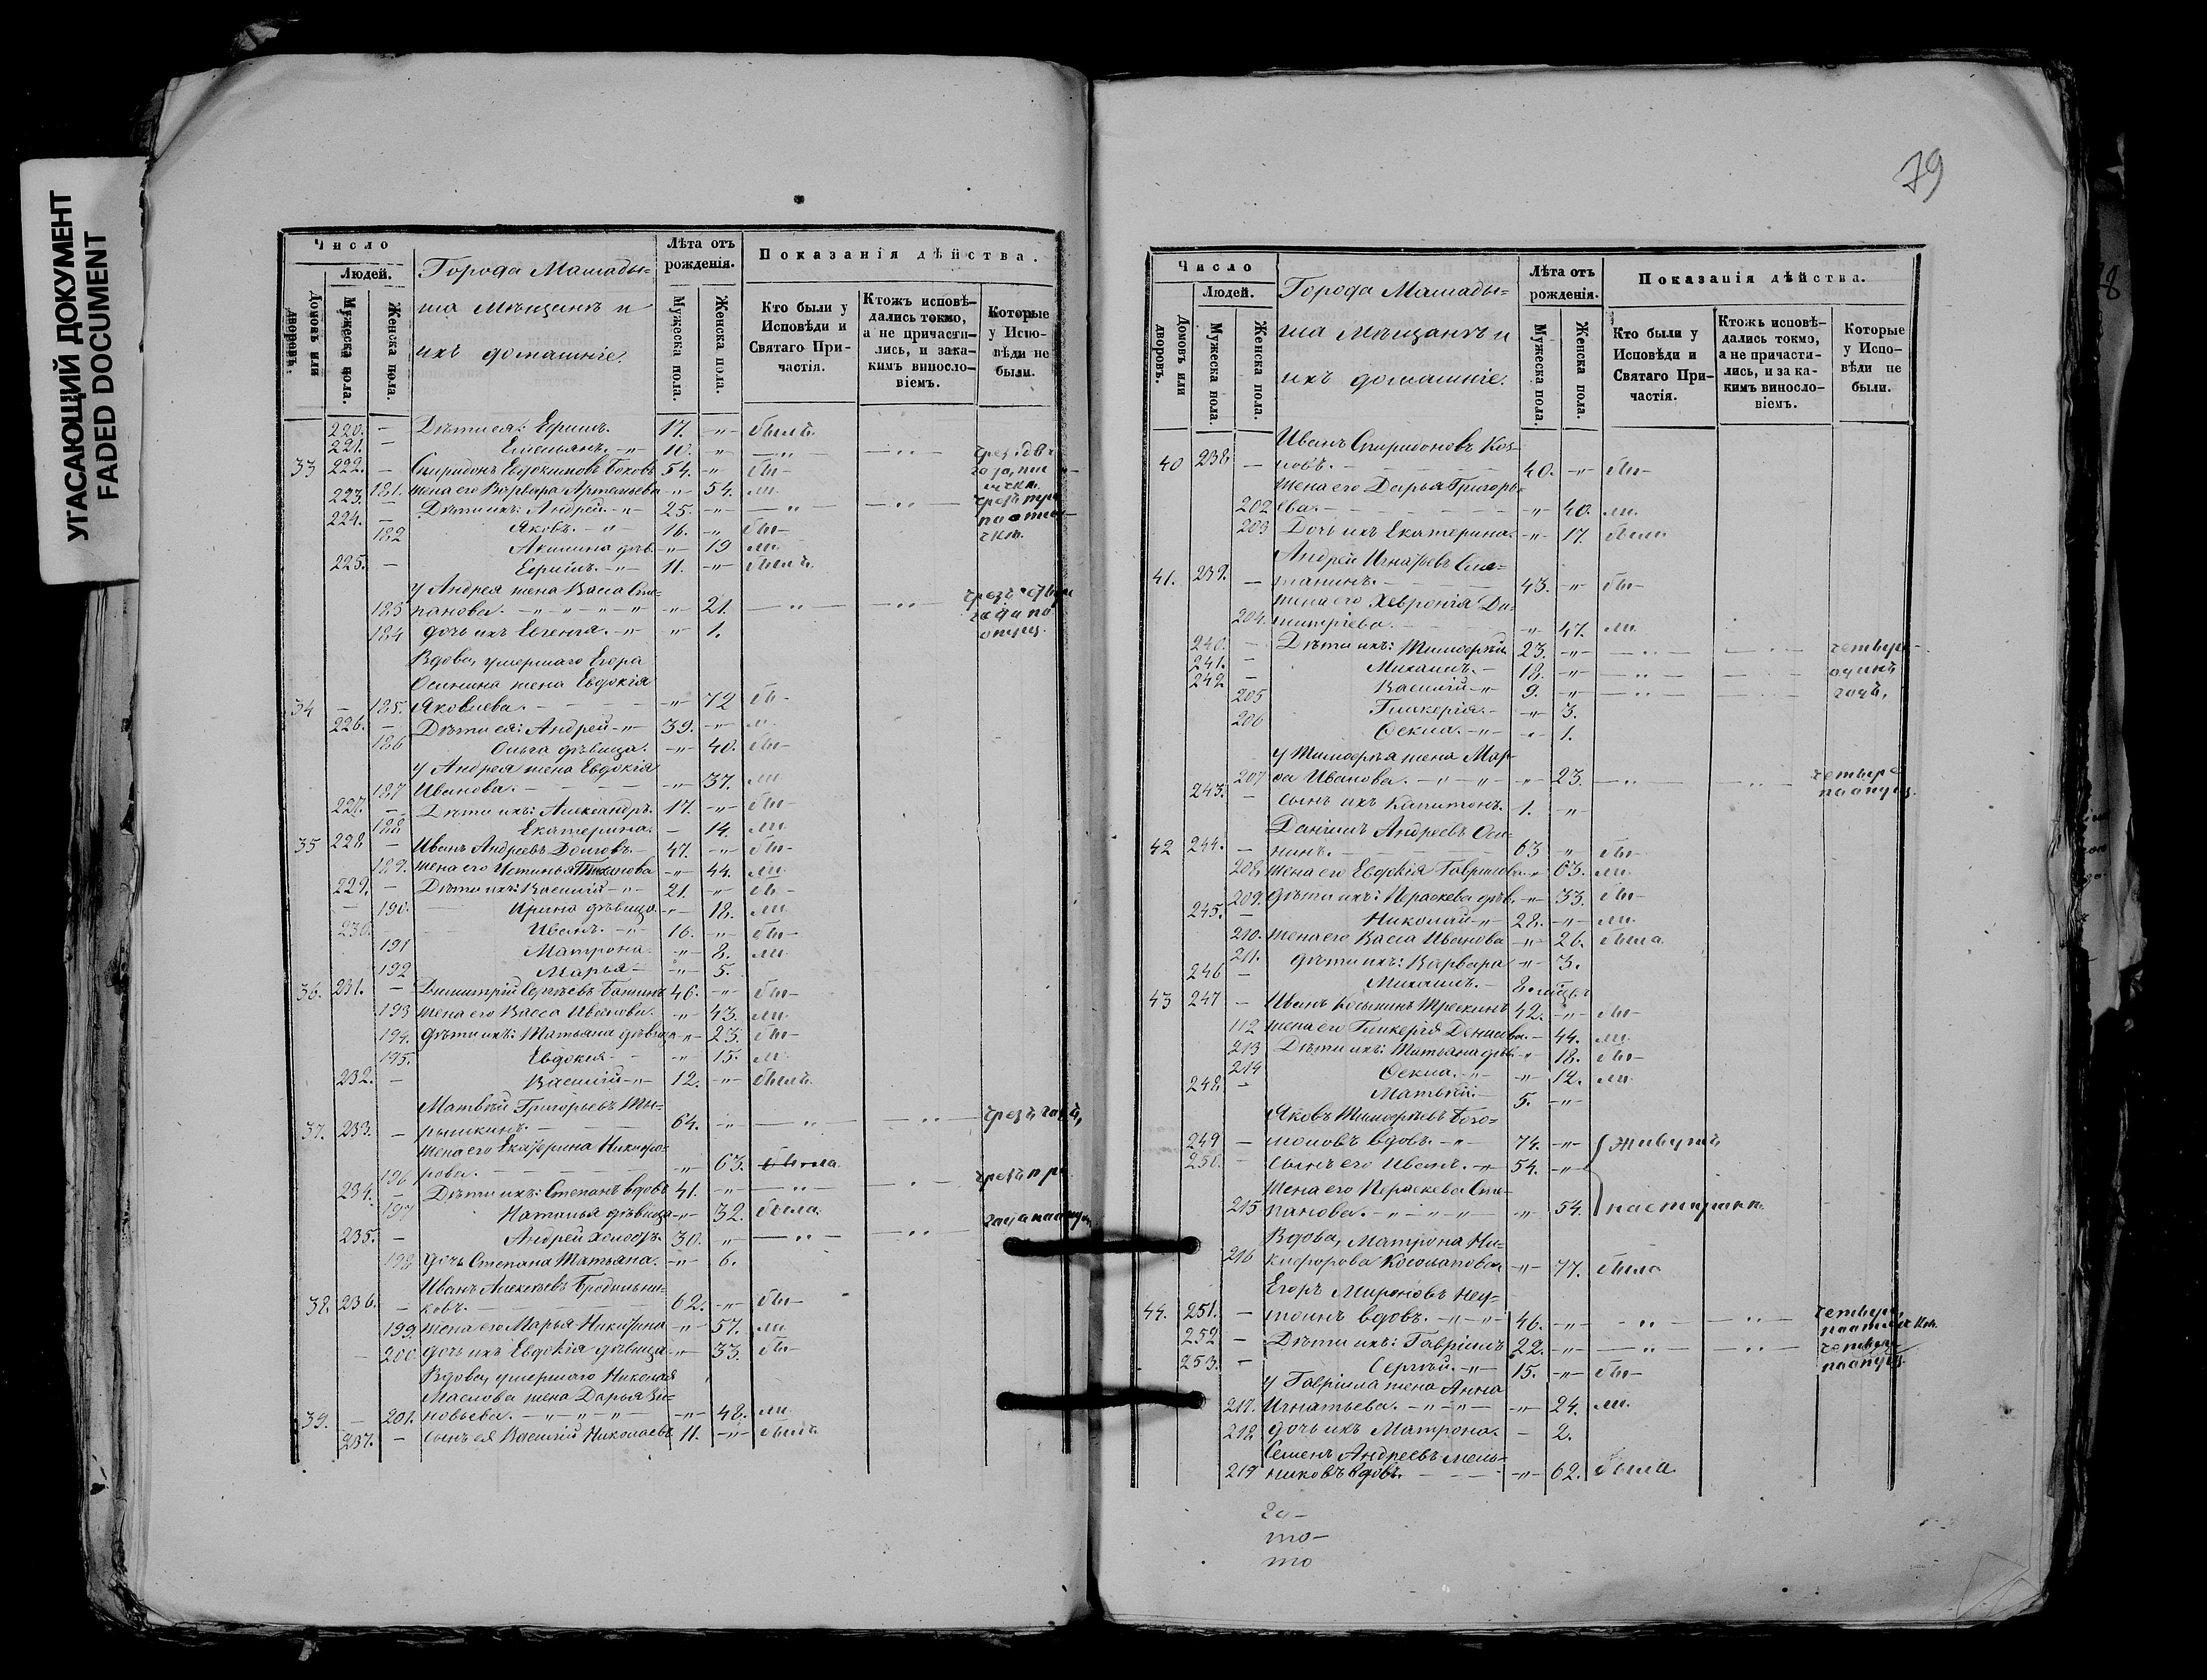 УГАСАЮЩИЙ ДОКУМЕНТ
FADED DOCUMENT
Число
Людей.
Домовъ или дворовъ.
Мужеска пола.
Женска пола.
Города Мамады-
ша Мѣщанъ и
ихъ домашніе.
Лѣта отъ рожденія.
Мужеска пола.
Женска пола.
Показанія дѣйства.
Кто были у Исповѣди и Святаго Причастія.
Ктожъ исповѣ-дались токмо, а не причасти-лись, и зака-кимъ винословіемъ.
Которые у Испо-вѣди не были.
220. — Дѣти ея: Ефимъ. 17. -„- былъ.
221. — Емельянъ. -„- 10. -„-
33 222. — Спиридонъ Евдокимовъ 54. -„- бы-
181. жена его Варвара Артемьева -„- 54. ли.
223. — Дѣти ихъ: Андрей. -„- 25. -„-
224. — Яковъ. -„- 16. -„- бы-
182 Акилина дѣв. -„- 19 ли.
225. — Ефимъ. -„- 11. -„- былъ.
У Андрея жена Васса Сте-
183 панова. -„- 21.
184 дочь ихъ -„- 1.
Вдова, умершаго Егора
Осинина жена Евдокія
34 — 185. Яковлева. -„- 72 бы-
226. — Дѣти ея: Андрей -„- 39. -„- ли.
186 Ольга дѣвица. -„- 40. бы-
У Андрея жена Евдокія
187 Иванова. -„- 37. ли
227. — Дѣти ихъ: Александръ. 17. -„- бы-
188 Екатерина. — 14. ли.
35 228 — Иванъ Андреевъ Долговъ. 47. -„- бы-
189. жена его Устинья -„- 44. ли.
229. — Дѣти ихъ: Василій -„- 21. -„- бы-
190. Ирина дѣвица -„- 18. ли.
230. Иванъ. -„- 16. -„- бы-
191 Матрона -„- 8. ли.
192 Марья -„- 5.
36. 231. — Димитрій Сергѣевъ 46. -„- бы-
193 жена его Васса Иванова. -„- 43. ли.
194. дѣти ихъ: Татьяна дѣвица -„- 23. бы-
195. Евдокія -„- 15. ли.
232. — Василій -„- 12. -„- былъ.
Матвѣй Григорьевъ Ты-
37. 233. — рышкинъ. 64. -„- чрезъ
жена его Екатерина Никифо-
196 рова. -„- 63. была.
234. — Дѣти ихъ: Степанъ вдовъ 41. -„-
197 Наталья дѣвица -„- 32. была.
235. — Андрей холостъ. 30. -„-
198 дочь Степана Татьяна. -„- 6.
Иванъ Алексѣевъ Бродильни-
38. 236. — ковъ. 62. -„- бы-
199. жена его Марья Никитина -„- 57. ли.
200 дочь ихъ Евдокія дѣвица -„- 33. бы-
Вдова, умершаго Николая
Маслова жена Дарья Зи-
39. — 201. новьева. -„- 48. ли.
237. — сынъ ея Василій Николаевъ 11. -„- былъ.
79
Число
Людей.
Домовъ или дворовъ.
Мужеска пола.
Женска пола.
Города Мамады-
ша Мѣщанъ и
ихъ домашніе.
Лѣта отъ рожденія.
Мужеска пола.
Женска пола.
Показанія дѣйства.
Кто были у Исповѣди и Святаго При-частія.
Ктожъ исповѣ-дались токмо, а не причасти-лись, и за ка-кимъ винословіемъ.
Которые у Испо-вѣди не были.
Иванъ Спиридоновъ Коз-
40 238. — ловъ. 40. -„- бы-
жена его Дарья Григорь-
202 ева. -„- 40. ли.
203 Дочь ихъ Екатерина. -„- 17. была
Андрей Игнатьевъ Сме-
41. 239. — танинъ. 43. -„- бы-
жена его Хевронія Ди-
204. митріева. -„- 47. ли.
240. — Дѣти ихъ: Тимофѣй 23. -„- четыре
241. — Михаилъ. 18. -„- одинъ
242 — Василій -„- 9. -„- годъ.
205 Гликерія. -„- 3.
206 Фекла. -„- 1.
У Тимофѣя жена Мар-
207 фа Иванова. -„- 23. четыре
243. — сынъ ихъ Капитонъ. 1. -„-
Даніилъ Андреевъ Оси-
42 244. — нинъ. 63 -„- бы-
208. жена его Евдокія Гаврилова -„- 63. ли.
209. дѣти ихъ: Параскева дѣв. -„- 33. бы-
245. — Николай -„- 28. -„- ли.
210. жена его Васса Иванова -„- 26. была.
211. дѣти ихъ: Варвара -„- 3.
246 — Михаилъ. — 8.
43 247 — Иванъ 42. -„- бы-
112 жена его Гликерія Денисова. 44. ли.
213 Дѣти ихъ: Татьяна дѣв. -„- 18. бы-
214 Фекла. -„- 12. ли.
248. — Матвѣй. 5. -„-
Яковъ Тимофѣевъ Бого-
249 — моловъ вдовъ. -„- 74. -„- живутъ
250. — сынъ его Иванъ. -„- 54. -„-
жена его Параскева Сте-
215 панова. -„- 54.
Вдова, Матрона Ни-
216 кифорова Косолапова -„- 77. была
Егоръ Мироновъ
44. 251. — вдовъ. -„- 46. -„- четыре
252. — Дѣти ихъ: Гавріилъ 22. -„-
253. — Сергѣй. -„- 15. -„- бы-
У Гавріила жена Анна
217. Игнатьева. -„- 24. ли.
218. дочь ихъ Матрона. — 2.
Семенъ Андреевъ Мель-
219 никовъ вдовъ. -„- 62. была